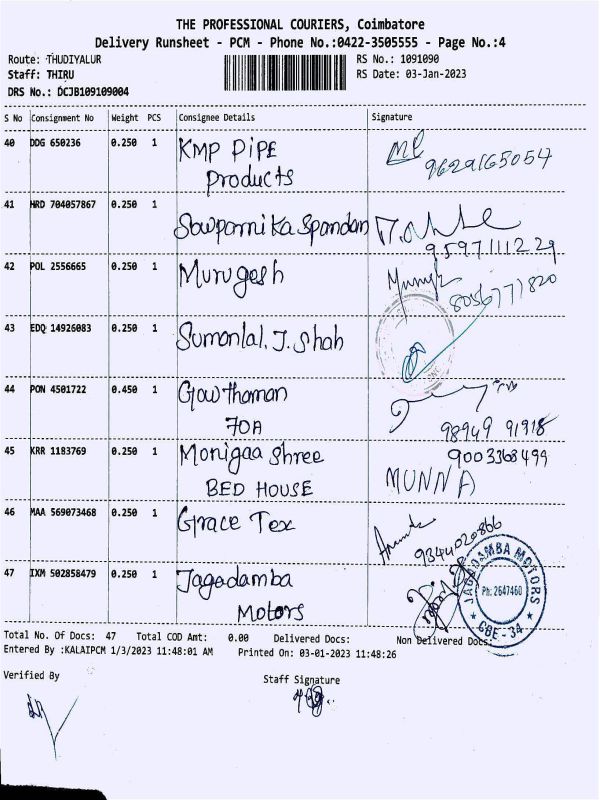 THE PROFESSIONAL COURIERS, Coimbatore
Delivery Runsheet - PCM - Phone No.:0422-3505555 - Page No.:4
Route: THUDIYALUR
RS No.: 1091090
Staff: THIRU
RS Date: 03-Jan-2023
DRS No.: DCJB109109004
S No Consignment No Weight PCS Consignee Details Signature
40 DDG 650236 0.250 1 KMP PIPE
Products
9629165054
41 HRD 704057867 0.250 1
Sowparnika Spandan
9597111229
42 POL 2556665 0.250 1 Murugesh
8056771820
43 EDQ 14926083 0.250 1 Sumanlal. J. Shah
44 PON 4501722 0.450 1 Gowthaman
70A
98949 91918
45 KRR 1183769 0.250 1 Monigaa Shree
9003368499
BED HOUSE MUNNA
46 MAA 569073468 0.250 1 Grace Tex
9344020866
47 IXM 502858479 0.250 1 Jagadamba
Motors
JAGADAMBA MOTORS
Ph: 2647460
CBE - 34
Total No. Of Docs: 47 Total COD Amt: 0.00 Delivered Docs: Non Delivered Docs:
Entered By :KALAIPCM 1/3/2023 11:48:01 AM Printed On: 03-01-2023 11:48:26
Verified By
Staff Signature